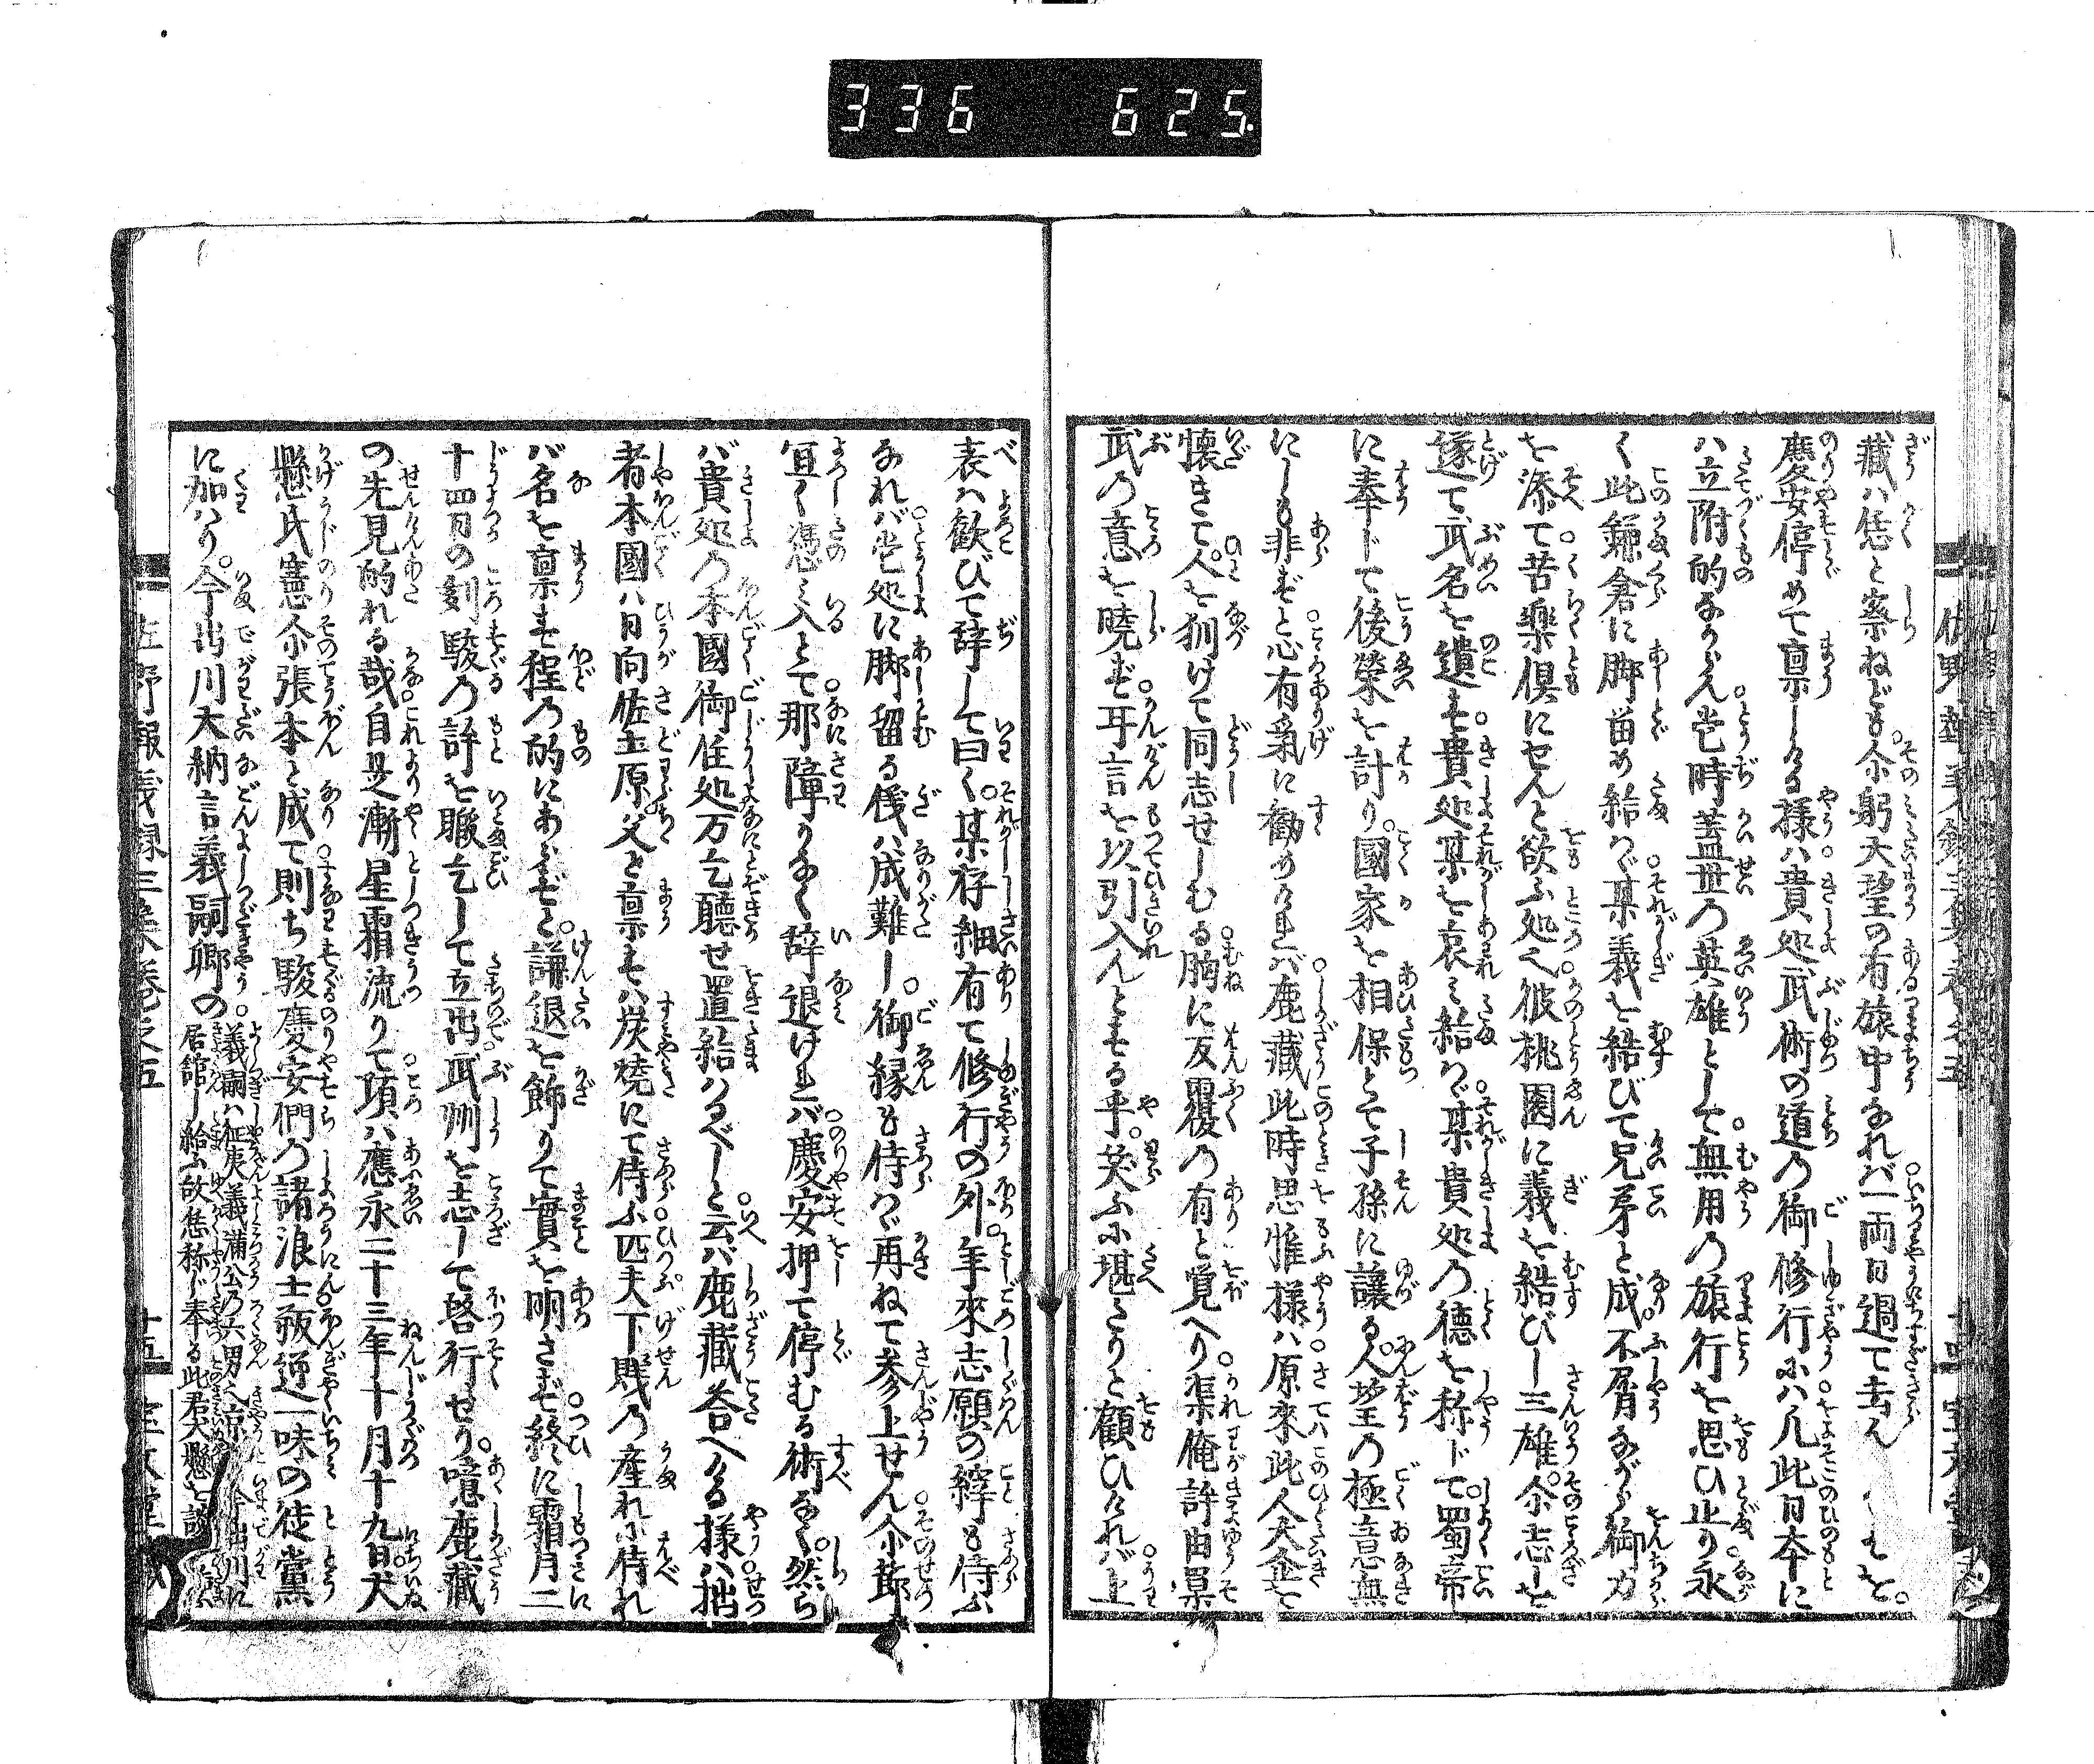 336 625
藏ハ恁と察ねども。尒躬大望の有旅中なれバ一両日過て去ん
慶安停めて稟しける様ハ貴処武術の道の御修行にハ凡此日本に
ハ立附的なからん当時蓋世の英雄として無用の旅行を思ひ止り永
く此鎌倉に脚畄め給ハゞ某義を結びて兄弟と成。不肖ながら御力
を添て苦樂倶にせんと欲ふ処也彼桃園に義を結びし三雄。尒志を
遂て武名を遺す貴処某を哀ミ給ハゞ某貴処の徳を称じて蜀帝
に奉じて後榮を計り。國家を相保とて子孫に譲る人望の極意無
にしも非ずと心有氣に勧めけれバ鹿藏此時思惟様ハ原來此人大企を
懐きて。人を狥けて同志せしむる胸に反覆の有と覚へり渠俺許由巣
武の意を暁ず耳言を以引入んとする乎。笑ふに堪たりと顧ひけれバ上
表ハ歓びて辞して曰く。某存細有て修行の外。年來志願の縡も侍ふ
なれバ当処に脚留る儀ハ成難し。御縁も侍ハゞ再ねて参上せん尒節
宜く憑ミ入とて那障りなく辞退けれバ慶安押て停むる術なく。然ら
バ貴処の本國御住処万乞聽せ置給ハるべしと云バ鹿藏荅へける様ハ拙
者本國ハ日向佐土原。父を稟せバ炭焼にて侍ふ匹夫下賎の産れに侍れ
バ名を稟す程の的にあらずと。謙退を飾りて實を明さず終に霜月二
十四日の刻駿の許を暇乞して立出武州を志して発行せり。噫鹿藏
の先見的れる哉自是漸星霜流りて項ハ應永二十三年十月十九日。犬
懸氏憲尒張本と成て則ち駿慶安們の諸浪士叛逆一味の徒黨
に加ハり。今出川大納言義嗣卿の。
義嗣ハ征夷義満公の六男也京今出川に
居舘し給ふ故恁称じ奉る此君犬懸を
佐野報義録三集巻之五
十五